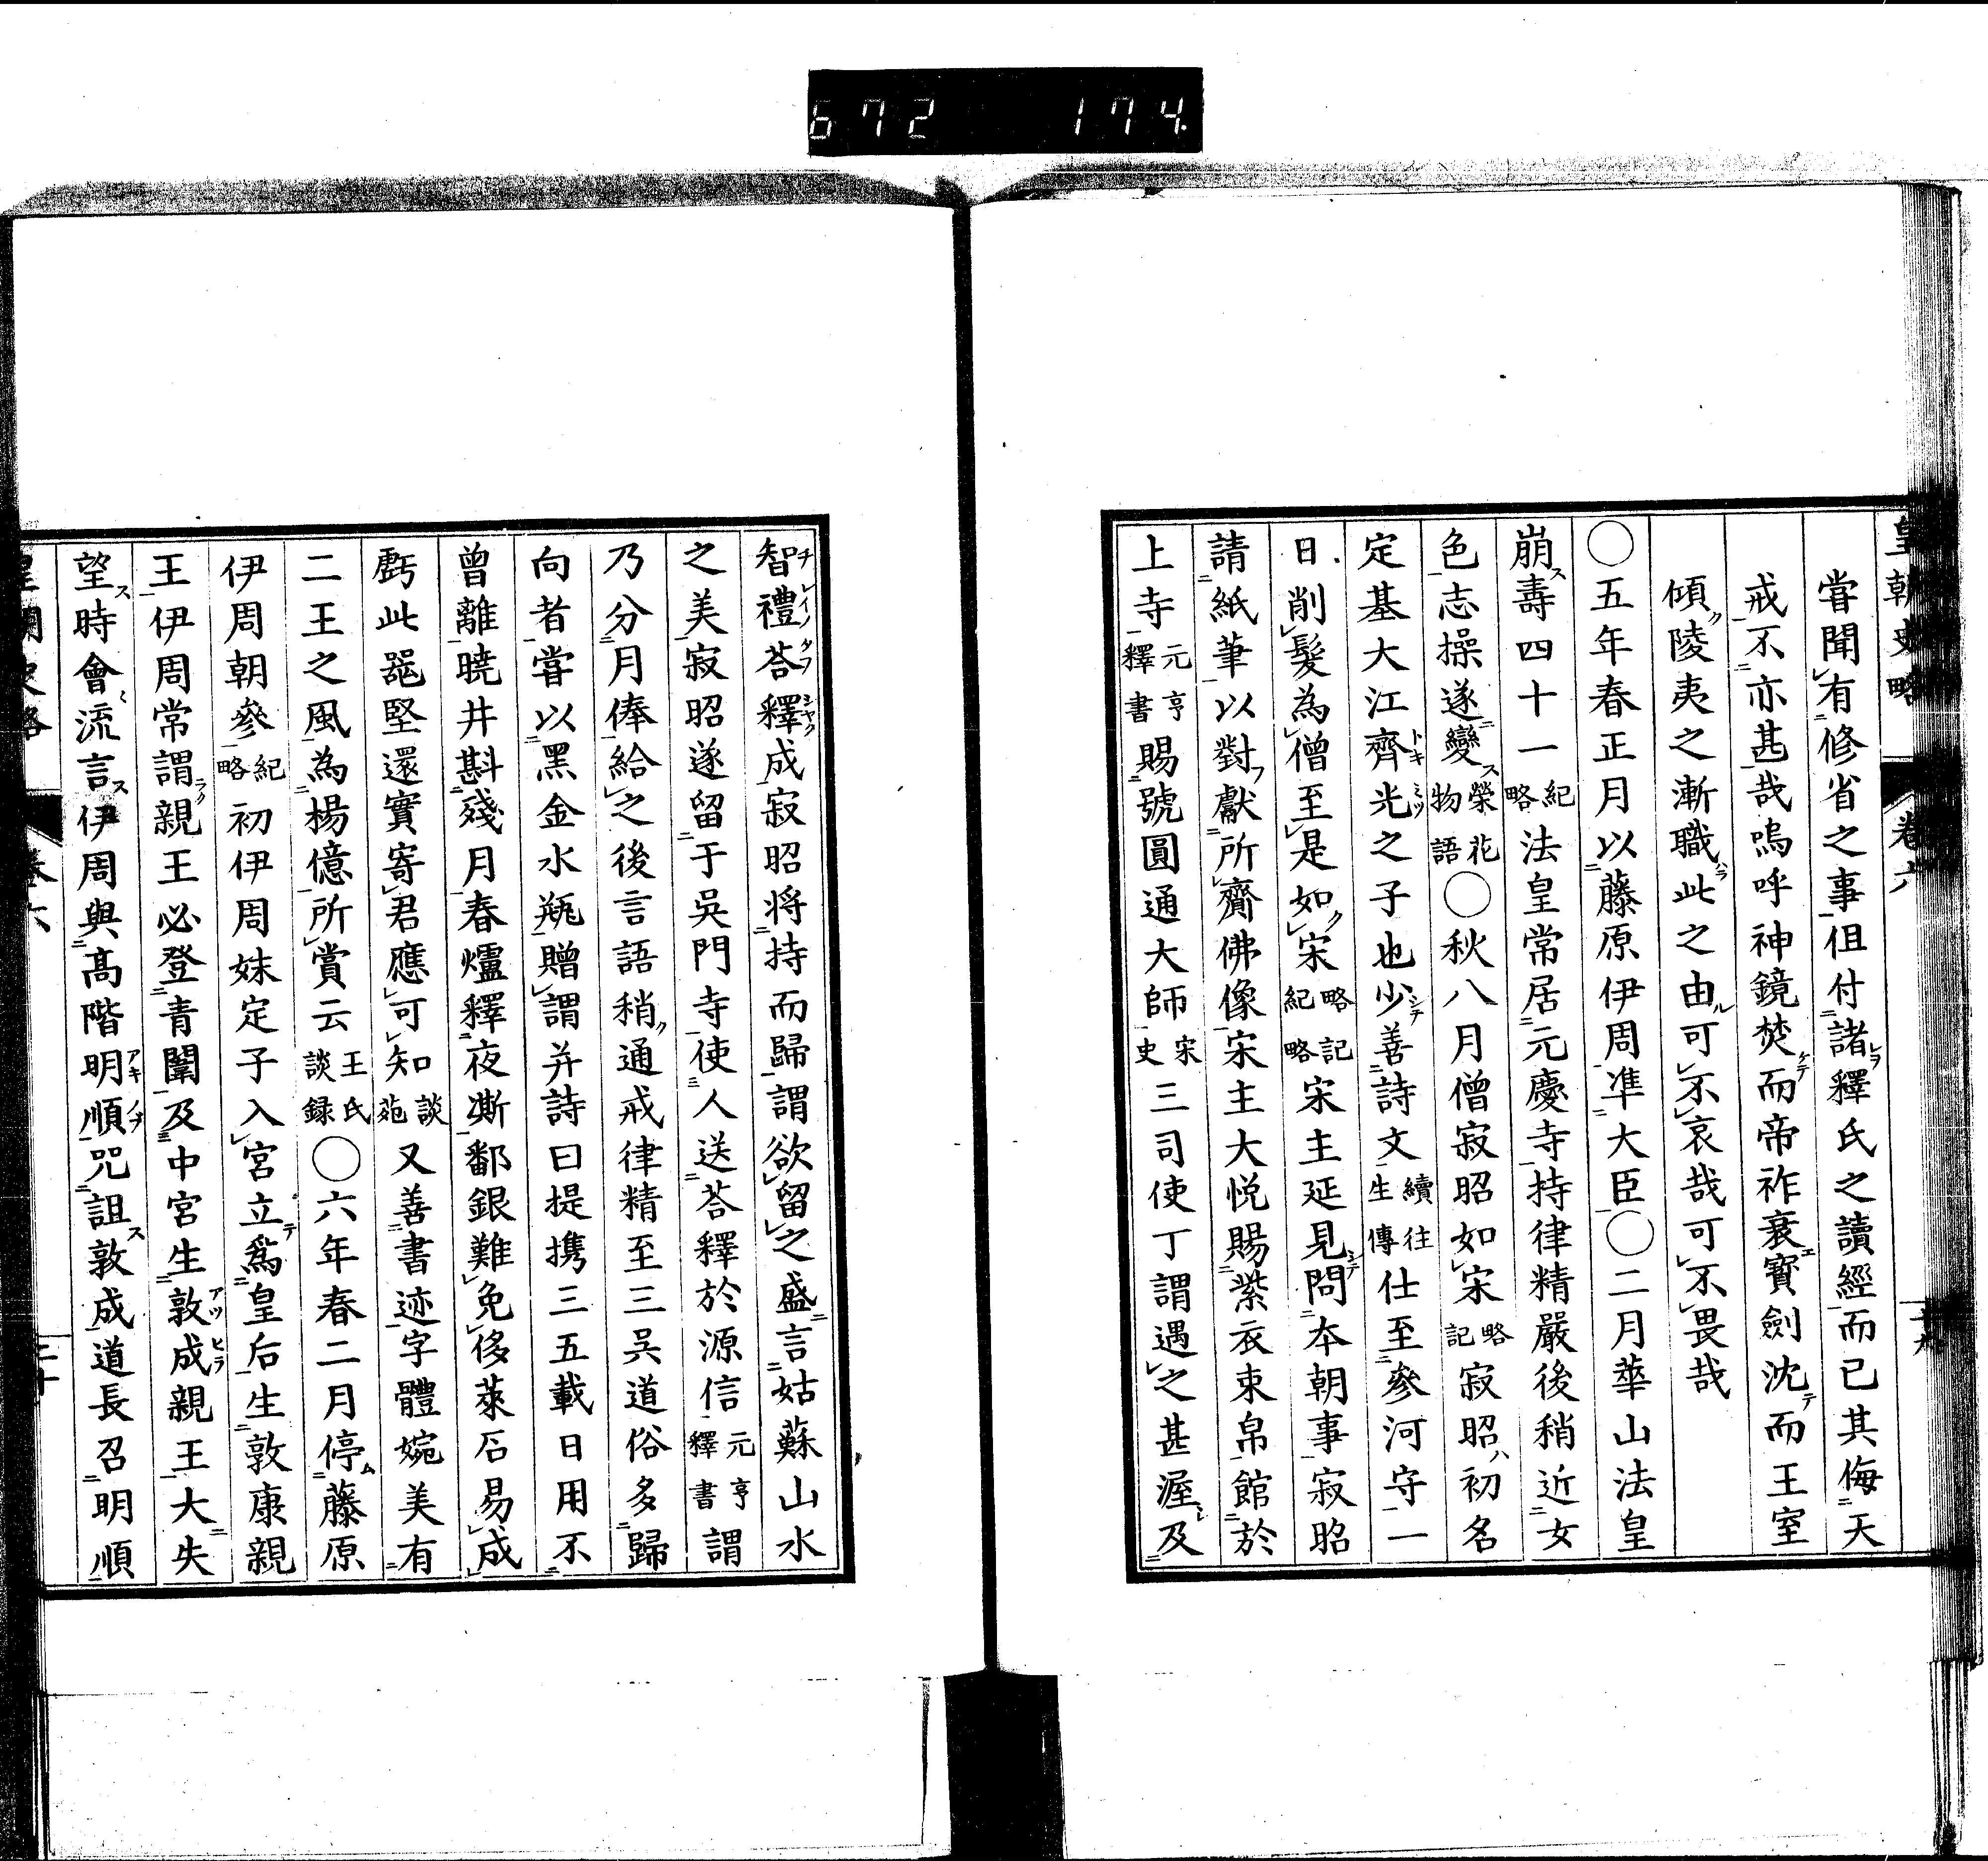 672 174.
皇朝史略 卷六
嘗聞有修省之事但付諸釋氏之讀經而已其侮天
戒不亦甚哉嗚呼神鏡焚而帝祚衰寶劍沈而王室
傾陵夷之漸職此之由可不哀哉可不畏哉
○五年春正月以藤原伊周凖大臣○二月華山法皇
崩壽四十一紀略法皇常居元慶寺持律精嚴後稍近女
色志操遂變榮花物語○秋八月僧寂昭如宋略記寂昭初名
定基大江齊光之子也少善詩文續往生傳仕至參河守一
日削髮為僧至是如宋略記紀略宋主延見問本朝事寂昭
請紙筆以對獻所齎佛像宋主大悅賜紫衣束帛館於
上寺元亨釋書賜號圓通大師宋史三司使丁謂遇之甚渥及
智禮荅釋成寂昭将持而歸謂欲留之盛言姑蘇山水
之美寂昭遂留于吳門寺使人送荅釋於源信元亨釋書謂
乃分月俸給之後言語稍通戒律精至三吳道俗多歸
向者嘗以黑金水瓶贈謂并詩曰提携三五載日用不
曾離曉井斟殘月春爐釋夜澌鄱銀難免侈萊石易成
虧此器堅還實寄君應可知談苑又善書迹字體婉美有
二王之風為楊億所賞云王氏談録○六年春二月停藤原
伊周朝參紀略初伊周妹定子入宮立爲皇后生敦康親
王伊周常謂親王必登青闈及中宮生敦成親王大失
望時會流言伊周與高階明順咒詛敦成道長召明順